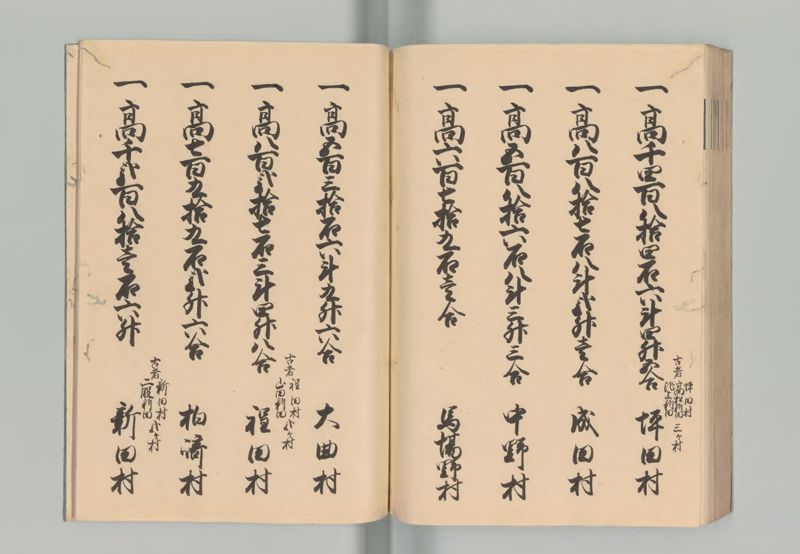 一高千四百八拾四石六斗四升五合 坪田村
古者 坪田村 高松新田 三ヶ村
一高八百八拾七石八斗弐升壱合 成田村
一高五百八拾六石八斗三升三合 中野村
一高六百七拾九石壱合 馬場野村
一高五百三拾石六斗九升六合 大曲村
古者 程田村 山田新田 弐ヶ村
一高八百弐拾七石三斗四升八合 程田村
一高七百九拾九石弐升六合 柏崎村
古者 新田村 二股新田 弐ヶ村
一高千弐百八拾壱石六升 新田村